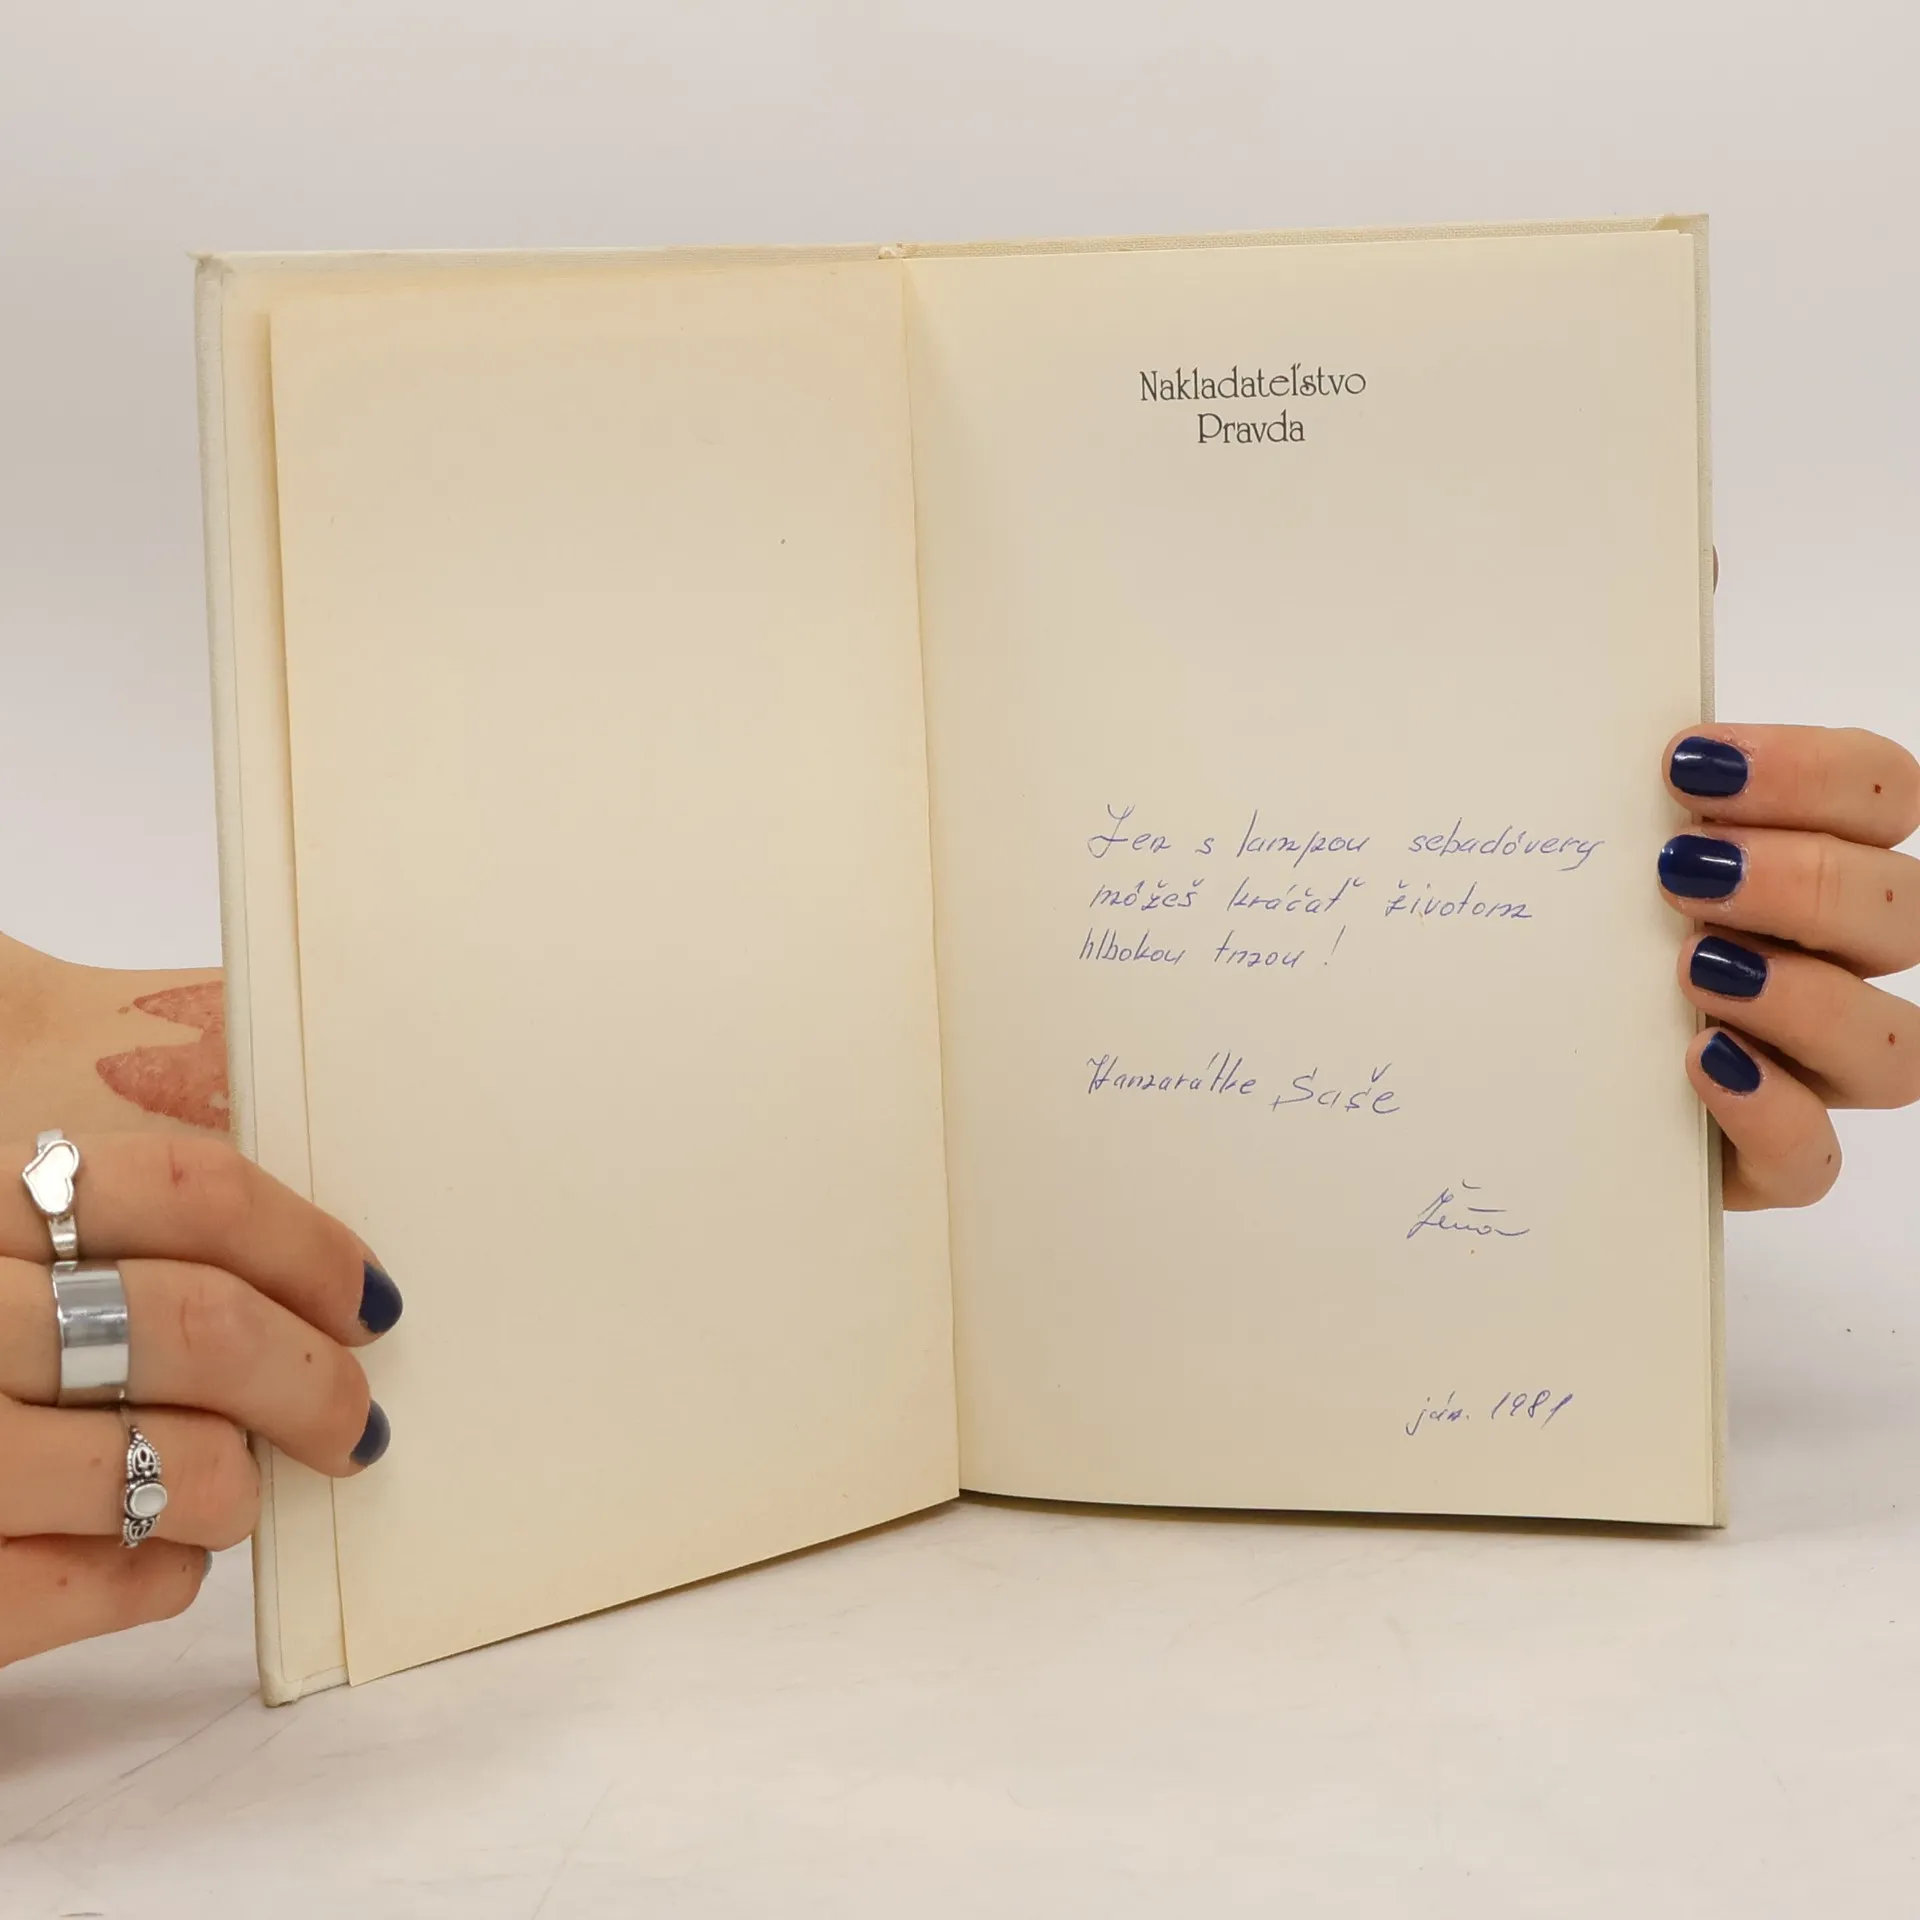 Nakladateľstvo
Pravda
Len s lampou sebadôvery
môžeš kráčať životom
hlbokou tmou!
Kamarátke Saše
Žeňa
ján. 1981